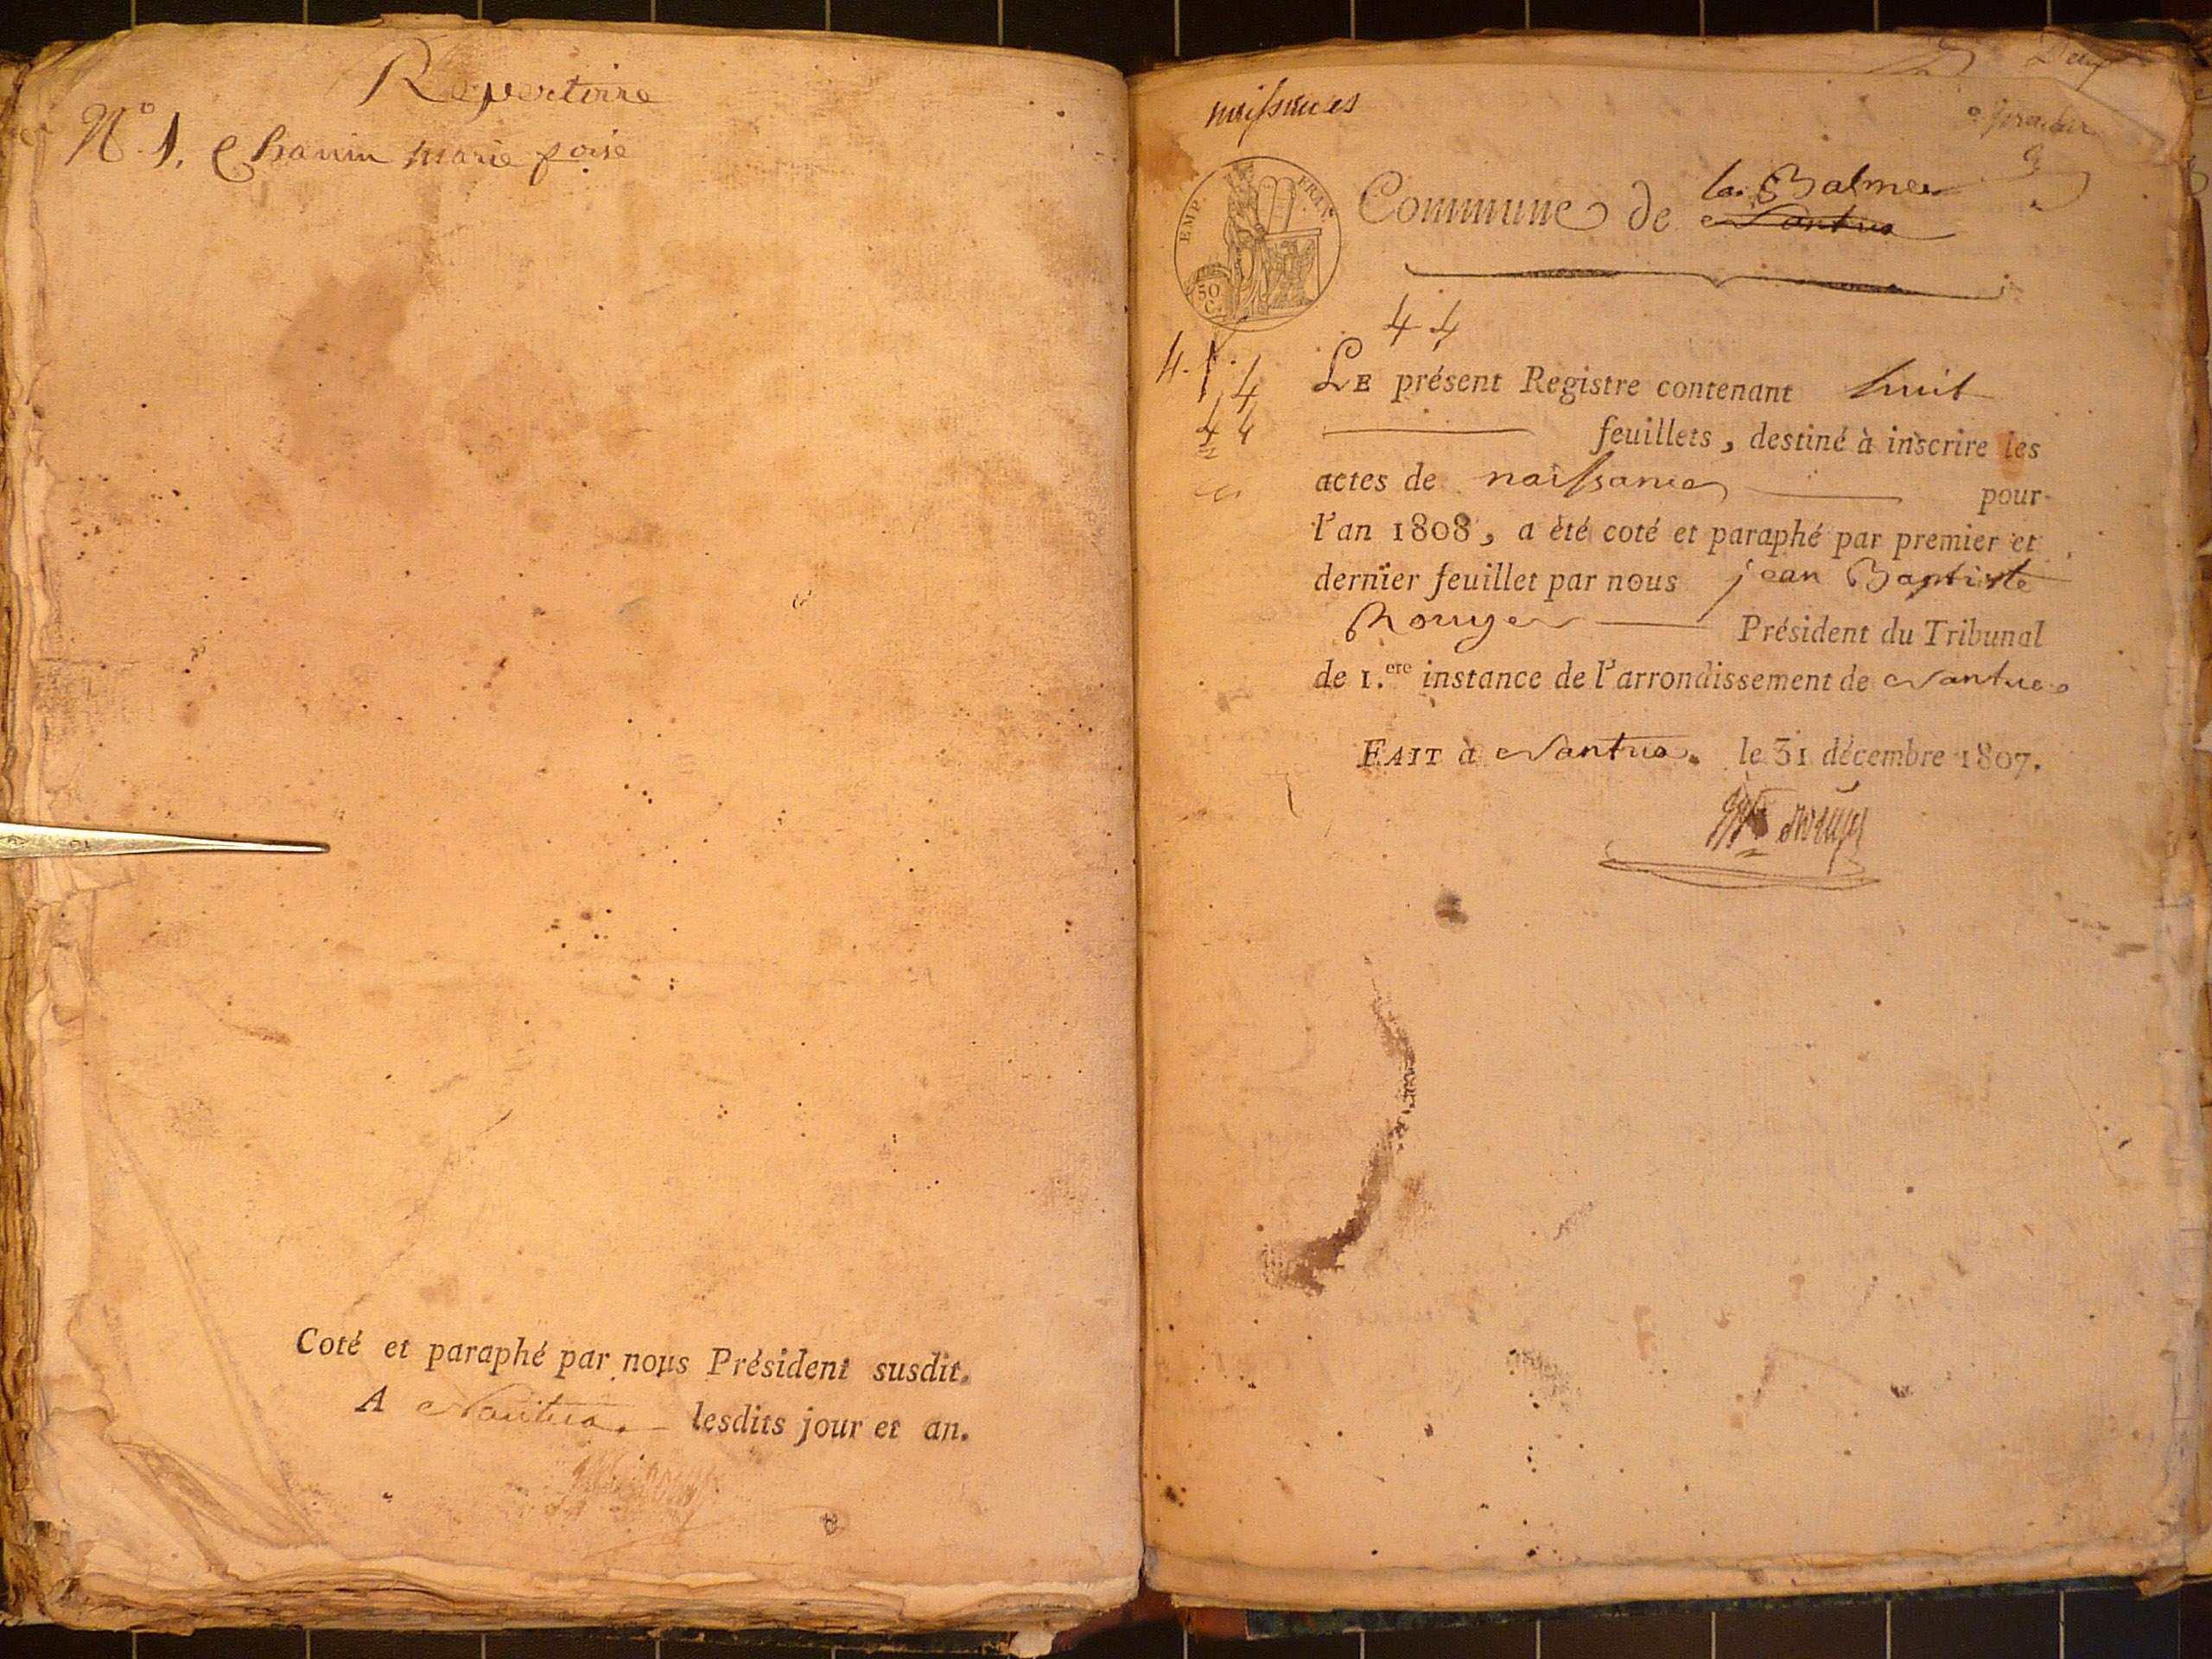 Repertoire
N.° 1. Chanin marie foise
Coté et paraphé par nous Président susdit.
A Nantua. lesdits jour et an.
naissances
EMP. FRAN.
50
C.
la Balme
Commune de Nantua
44
4
44
LE présent Registre contenant huit
feuillets, destiné à inscrire les
actes de naissance pour
l'an 1808, a été coté et paraphé par premier et
dernier feuillet par nous jean Baptiste
Rouyer Président du Tribunal
de 1.ere instance de l'arrondissement de Nantua
FAIT à Nantua. le 31 décembre 1807.